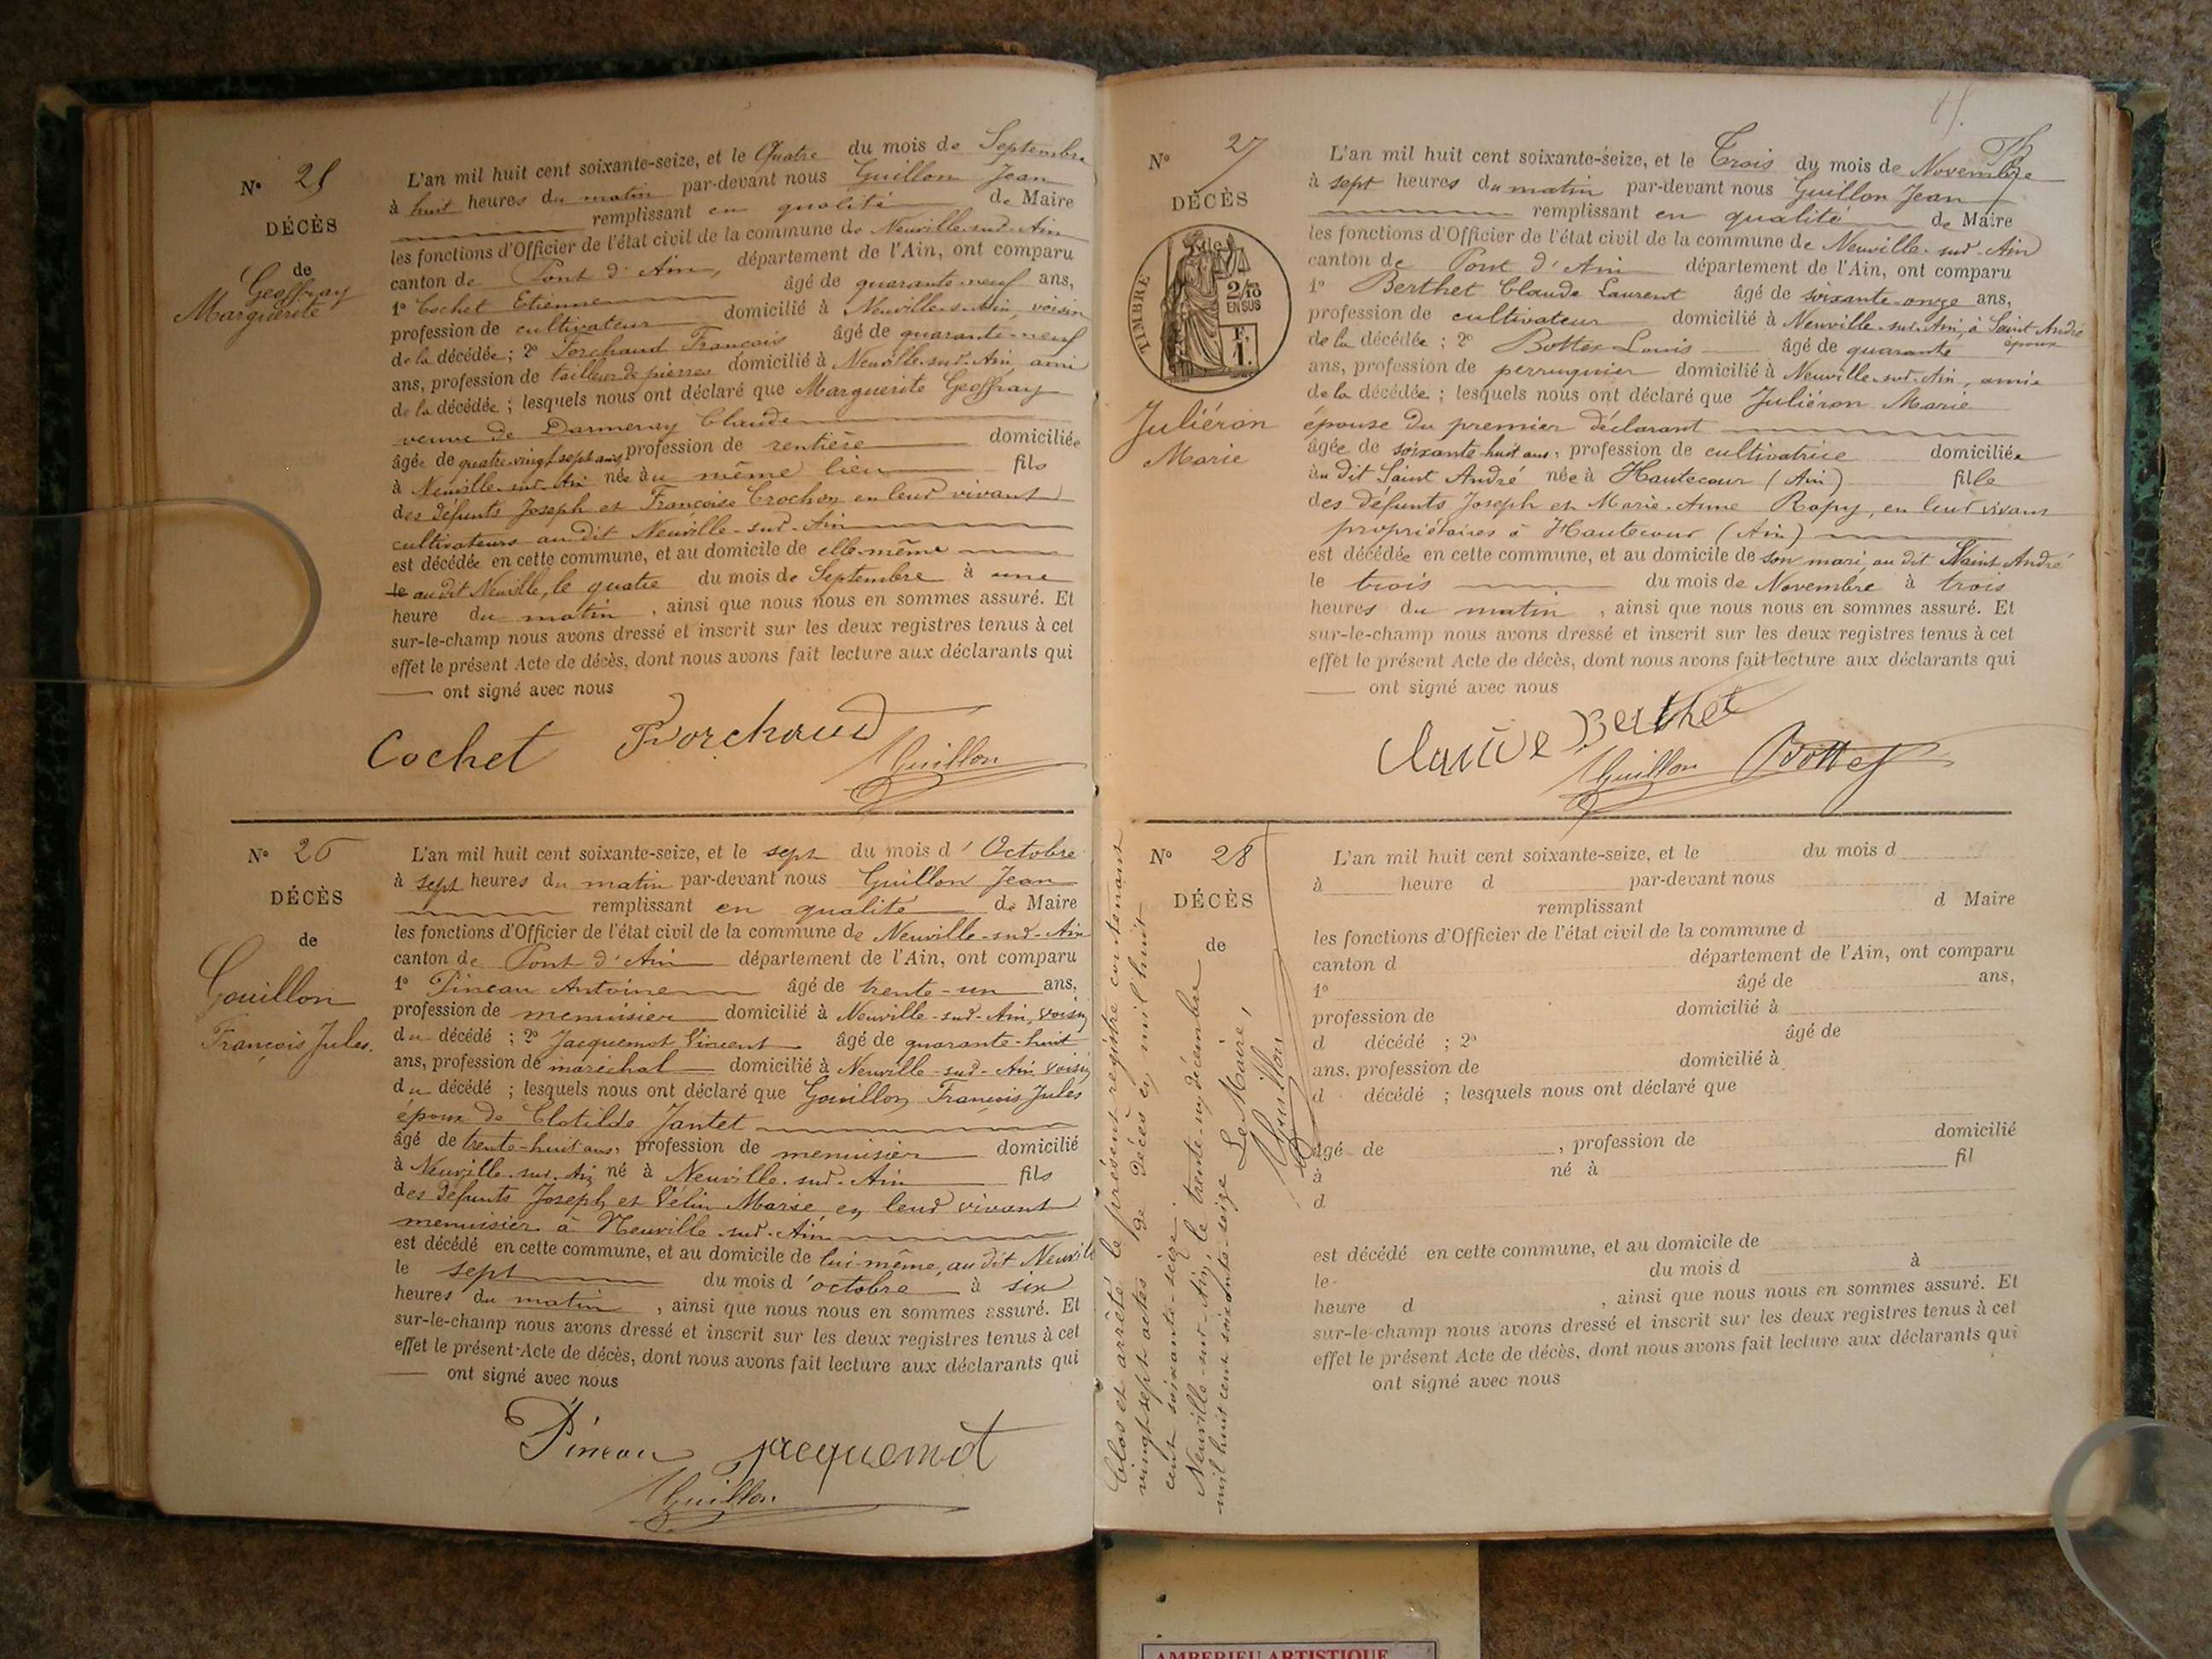 N° 25
DÉCÈS
de
Geoffray
Marguerite
L'an mil huit cent soixante-seize, et le Quatre du mois de Septembre
à huit heures du matin par-devant nous Guillon Jean
remplissant en qualité de Maire
les fonctions d'Officier de l'état civil de la commune de Neuville-sur-Ain
canton de Pont d'Ain, département de l'Ain, ont comparu
1° Cochet Etienne âgé de quarante-neuf ans,
profession de cultivateur domicilié à Neuville-s-Ain, voisin
de la décédée ; 2° Forchaud François âgé de quarante-neuf
ans, profession de tailleur de pierres domicilié à Neuville-sur-Ain, ami
de la décédée ; lesquels nous ont déclaré que Marguerite Geoffray
veuve de Darmeray Claude
âgée de quatre-vingt sept ans, profession de rentière domiciliée
à Neuville-sur-Ain née au même lieu fils
des défunts Joseph et Françoise Crochon en leur vivant
cultivateurs au dit Neuville-sur-Ain
est décédée en cette commune, et au domicile de elle-même
le au dit Neuville, le quatre du mois de Septembre à une
heure du matin, ainsi que nous nous en sommes assuré. Et
sur-le-champ nous avons dressé et inscrit sur les deux registres tenus à cet
effet le présent Acte de décès, dont nous avons fait lecture aux déclarants qui
ont signé avec nous
Cochet Forchaud
Guillon
N° 26
DÉCÈS
de
Gouillon
François Jules.
L'an mil huit cent soixante-seize, et le sept du mois d'Octobre
à sept heures du matin par-devant nous Guillon Jean
remplissant en qualité de Maire
les fonctions d'Officier de l'état civil de la commune de Neuville-sur-Ain
canton de Pont d'Ain département de l'Ain, ont comparu
1° Pineau Antoine âgé de trente-un ans,
profession de menuisier domicilié à Neuville-sur-Ain, voisin
du décédé ; 2° Jacquemot Vincent âgé de quarante-huit
ans, profession de maréchal domicilié à Neuville-sur-Ain, voisin
du décédé ; lesquels nous ont déclaré que Gouillon François Jules
époux de Clotilde Jantet
âgé de trente-huit ans, profession de menuisier domicilié
à Neuville-sur-Ain né à Neuville-sur-Ain fils
des défunts Joseph et Vélin Marie, en leur vivant
menuisier à Neuville-sur-Ain
est décédé en cette commune, et au domicile de lui-même, au dit Neuville
le sept du mois d'octobre à six
heures du matin, ainsi que nous nous en sommes assuré. Et
sur-le-champ nous avons dressé et inscrit sur les deux registres tenus à cet
effet le présent Acte de décès, dont nous avons fait lecture aux déclarants qui
ont signé avec nous
Pineau Jacquemot
Guillon
N° 27
DÉCÈS
de
TIMBRE
2/10
EN SUS
F.
1.
Juliéron
Marie
L'an mil huit cent soixante-seize, et le Trois du mois de Novembre
à sept heures du matin par-devant nous Guillon Jean
remplissant en qualité de Maire
les fonctions d'Officier de l'état civil de la commune de Neuville-sur-Ain
canton de Pont d'Ain département de l'Ain, ont comparu
1° Berthet Claude Laurent âgé de soixante-onze ans,
profession de cultivateur domicilié à Neuville-sur-Ain, à Saint André
époux
de la décédée ; 2° Bottex Louis âgé de quarante
ans, profession de perruquier domicilié à Neuville-sur-Ain, ami
de la décédée ; lesquels nous ont déclaré que Juliéron Marie
épouse du premier déclarant
âgée de soixante-huit ans, profession de cultivatrice domiciliée
au dit Saint André née à Hautecour (Ain) fille
des défunts Joseph et Marie-Anne Ropy, en leur vivant
propriétaires à Hautecour (Ain)
est décédée en cette commune, et au domicile de son mari, au dit Saint André
le trois du mois de Novembre à trois
heures du matin, ainsi que nous nous en sommes assuré. Et
sur-le-champ nous avons dressé et inscrit sur les deux registres tenus à cet
effet le présent Acte de décès, dont nous avons fait lecture aux déclarants qui
ont signé avec nous
Claude Berthet
Guillon Bottex
N° 28
DÉCÈS
de
L'an mil huit cent soixante-seize, et le du mois d
à heure d par-devant nous
remplissant d Maire
les fonctions d'Officier de l'état civil de la commune d
canton d département de l'Ain, ont comparu
1° âgé de ans,
profession de domicilié à
d décédé ; 2° âgé de
ans, profession de domicilié à
d décédé ; lesquels nous ont déclaré que
âgé de , profession de domicilié
à né à fil
d
est décédé en cette commune, et au domicile de
le du mois d à
heure d , ainsi que nous nous en sommes assuré. Et
sur-le-champ nous avons dressé et inscrit sur les deux registres tenus à cet
effet le présent Acte de décès, dont nous avons fait lecture aux déclarants qui
ont signé avec nous
Clos et arrêté le présent registre contenant
vingt-sept actes de décès en mil huit
cent soixante-seize.
Neuville-sur-Ain, le trente-un décembre
mil huit cent soixante-seize
Le Maire,
Guillon
AMBERIEU ARTISTIQUE